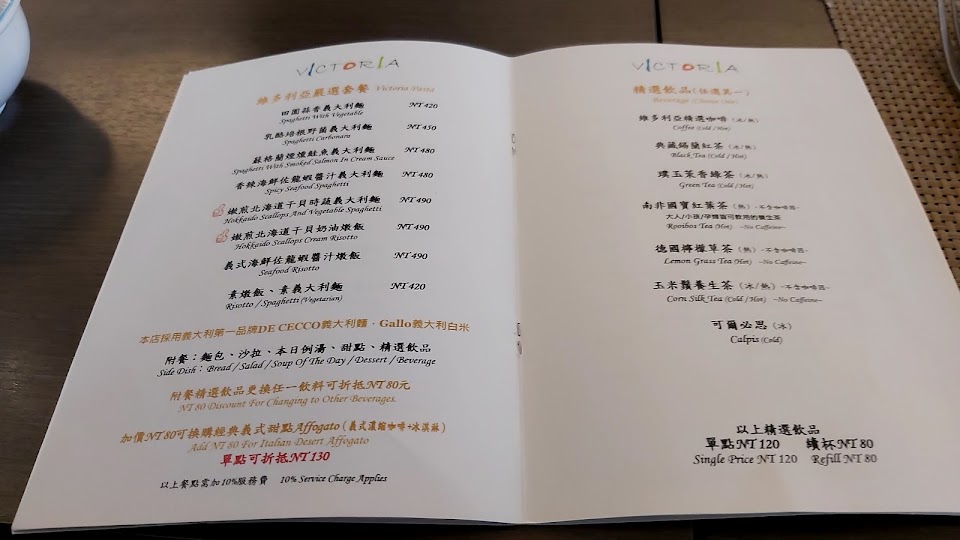 VICTORIA
維多利亞嚴選套餐 Victoria Pasta
田園蒜香義大利麵 NT 420
Spaghetti With Vegetable
乳酪培根野菌義大利麵 NT 450
Spaghetti Carbonara
蘇格蘭煙燻鮭魚義大利麵 NT 480
Spaghetti With Smoked Salmon In Cream Sauce
香辣海鮮佐龍蝦醬汁義大利麵 NT 480
Spicy Seafood Spaghetti
嫩煎北海道干貝時蔬義大利麵 NT 490
Hokkaido Scallops And Vegetable Spaghetti
嫩煎北海道干貝奶油燉飯 NT 490
Hokkaido Scallops Cream Risotto
義式海鮮佐龍蝦醬汁燉飯 NT 490
Seafood Risotto
素燉飯、素義大利麵 NT 420
Risotto / Spaghetti (Vegetarian)
本店採用義大利第一品牌DE CECCO義大利麵．Gallo義大利白米
附餐：麵包、沙拉、本日例湯、甜點、精選飲品
Side Dish：Bread / Salad / Soup Of The Day / Dessert / Beverage
附餐精選飲品更換任一飲料可折抵NT 80元
NT 80 Discount For Changing to Other Beverages.
加價NT 80可換購經典義式甜點Affogato (義式濃縮咖啡+冰淇淋)
Add NT 80 For Italian Desert Affogato
單點可折抵NT 130
以上餐點需加10%服務費 10% Service Charge Applies
VICTORIA
精選飲品(任選其一)
Beverage (Choose One)
維多利亞精選咖啡 (冰/熱)
Coffee (Cold / Hot)
典藏錫蘭紅茶 (冰/熱)
Black Tea (Cold / Hot)
璞玉茉香綠茶 (冰/熱)
Green Tea (Cold / Hot)
南非國寶紅葉茶 (熱) -不含咖啡因-
大人/小孩/孕婦皆可飲用的養生茶
Rooibos Tea (Hot) ~No Caffeine~
德國檸檬草茶 (熱) -不含咖啡因-
Lemon Grass Tea (Hot) ~No Caffeine~
玉米鬚養生茶 (冰/熱) -不含咖啡因-
Corn Silk Tea (Cold / Hot) ~No Caffeine~
可爾必思 (冰)
Calpis (Cold)
以上精選飲品
單點NT 120 續杯NT 80
Single Price NT 120 Refill NT 80